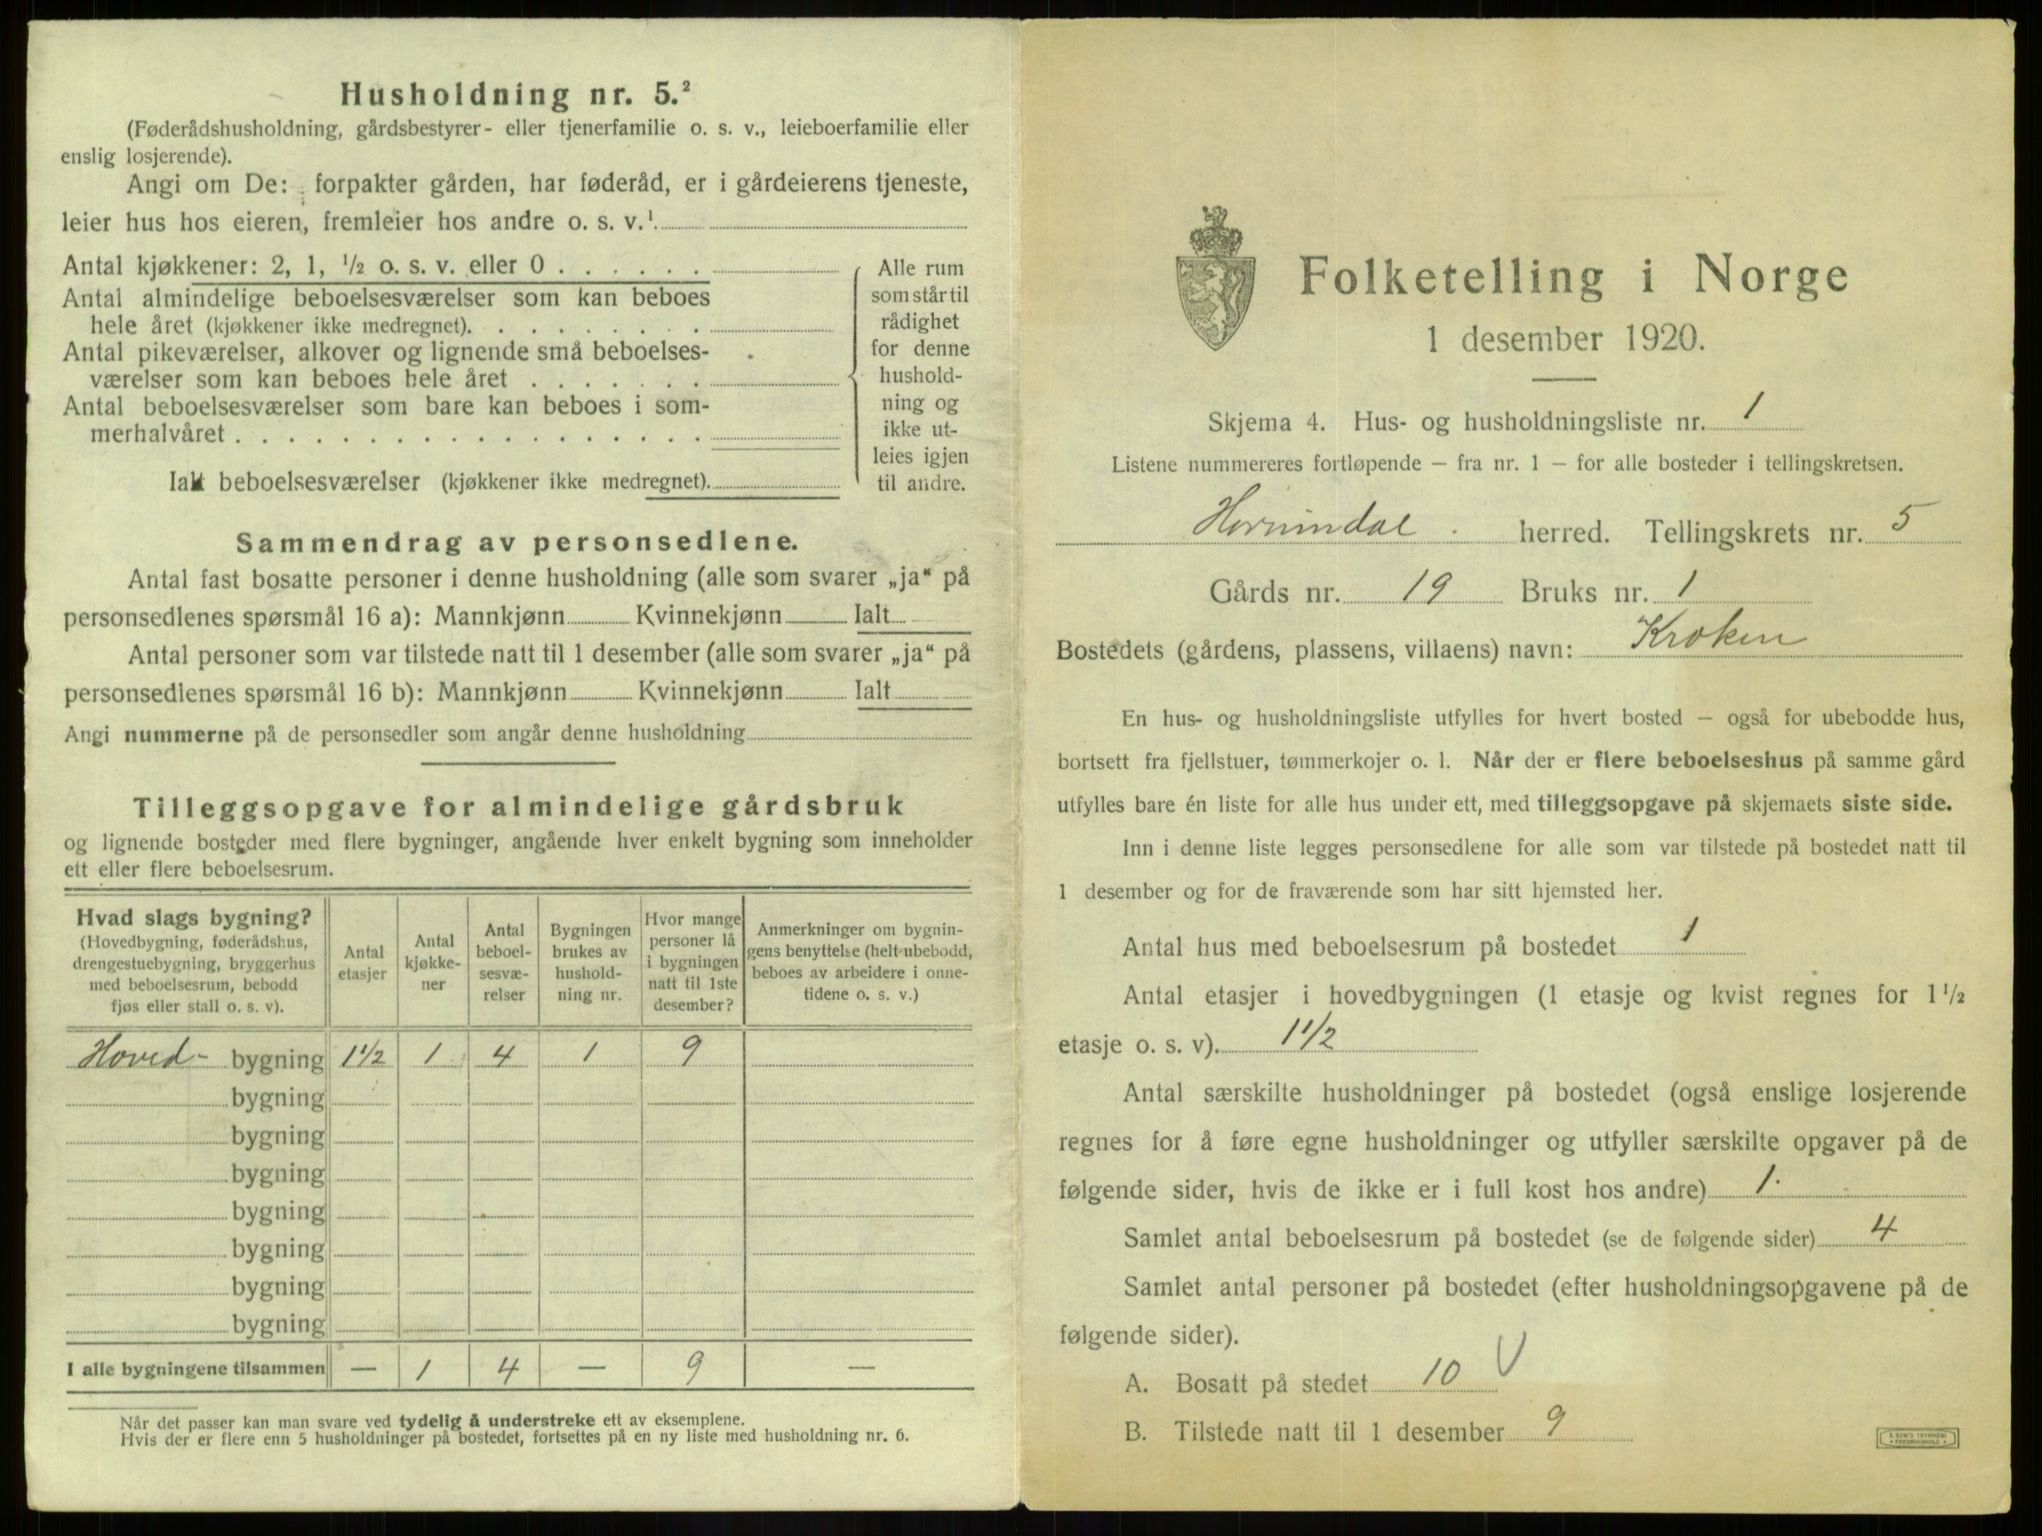 Husholdning nr. 5.²
(Føderådshusholdning, gårdsbestyrer- eller tjenerfamilie o. s. v., leieboerfamilie eller
enslig losjerende).
Angi om De: forpakter gården, har føderåd, er i gårdeierens tjeneste,
leier hus hos eieren, fremleier hos andre o. s. v.¹
Antal kjøkkener: 2, 1, ½ o. s. v. eller 0 . . . . . .
Antal almindelige beboelsesværelser som kan beboes
hele året (kjøkkener ikke medregnet). . . . . . . . .
Antal pikeværelser, alkover og lignende små beboelses-
værelser som kan beboes hele året . . . . . . .
Antal beboelsesværelser som bare kan beboes i som-
merhalvåret . . . . . . . . . . . . . . . . . .
Ialt beboelsesværelser (kjøkkener ikke medregnet).
Alle rum
som står til
rådighet
for denne
hushold-
ning og
ikke ut-
leies igjen
til andre.
Sammendrag av personsedlene.
Antal fast bosatte personer i denne husholdning (alle som svarer „ja“ på
personsedlenes spørsmål 16 a): Mannkjønn Kvinnekjønn Ialt
Antal personer som var tilstede natt til 1 desember (alle som svarer „ja“ på
personsedlenes spørsmål 16 b): Mannkjønn Kvinnekjønn Ialt
Angi nummerne på de personsedler som angår denne husholdning
Tilleggsopgave for almindelige gårdsbruk
og lignende bosteder med flere bygninger, angående hver enkelt bygning som inneholder
ett eller flere beboelsesrum.
Hvad slags bygning?
(Hovedbygning, føderådshus,
drengestuebygning, bryggerhus
med beboelsesrum, bebodd
fjøs eller stall o. s. v).
Antal
etasjer
Antal
kjøkke-
ner
Antal
beboel-
sesvæ-
relser
Bygningen
brukes av
hushold-
ning nr.
Hvor mange
personer lå
i bygningen
natt til 1ste
desember?
Anmerkninger om bygnin-
gens benyttelse (helt ubebodd,
beboes av arbeidere i onne-
tidene o. s. v.)
Hoved- bygning 1½ 1 4 1 9
bygning
bygning
bygning
bygning
bygning
bygning
bygning
I alle bygningene tilsammen — 1 4 — 9 —
Når det passer kan man svare ved tydelig å understreke ett av eksemplene.
Hvis der er flere enn 5 husholdninger på bostedet, fortsettes på en ny liste med husholdning nr. 6.
Folketelling i Norge
1 desember 1920.
Skjema 4. Hus- og husholdningsliste nr. 1
Listene nummereres fortløpende – fra nr. 1 – for alle bosteder i tellingskretsen.
Hornindal herred. Tellingskrets nr. 5
Gårds nr. 19 Bruks nr. 1
Bostedets (gårdens, plassens, villaens) navn: Kroken
En hus- og husholdningsliste utfylles for hvert bosted – også for ubebodde hus,
bortsett fra fjellstuer, tømmerkojer o. l. Når der er flere beboelseshus på samme gård
utfylles bare én liste for alle hus under ett, med tilleggsopgave på skjemaets siste side.
Inn i denne liste legges personsedlene for alle som var tilstede på bostedet natt til
1 desember og for de fraværende som har sitt hjemsted her.
Antal hus med beboelsesrum på bostedet 1
Antal etasjer i hovedbygningen (1 etasje og kvist regnes for 1½
etasje o. s. v). 1½
Antal særskilte husholdninger på bostedet (også enslige losjerende
regnes for å føre egne husholdninger og utfyller særskilte opgaver på de
følgende sider, hvis de ikke er i full kost hos andre) 1.
Samlet antal beboelsesrum på bostedet (se de følgende sider) 4
Samlet antal personer på bostedet (efter husholdningsopgavene på de
følgende sider).
A. Bosatt på stedet 10 V
B. Tilstede natt til 1 desember 9